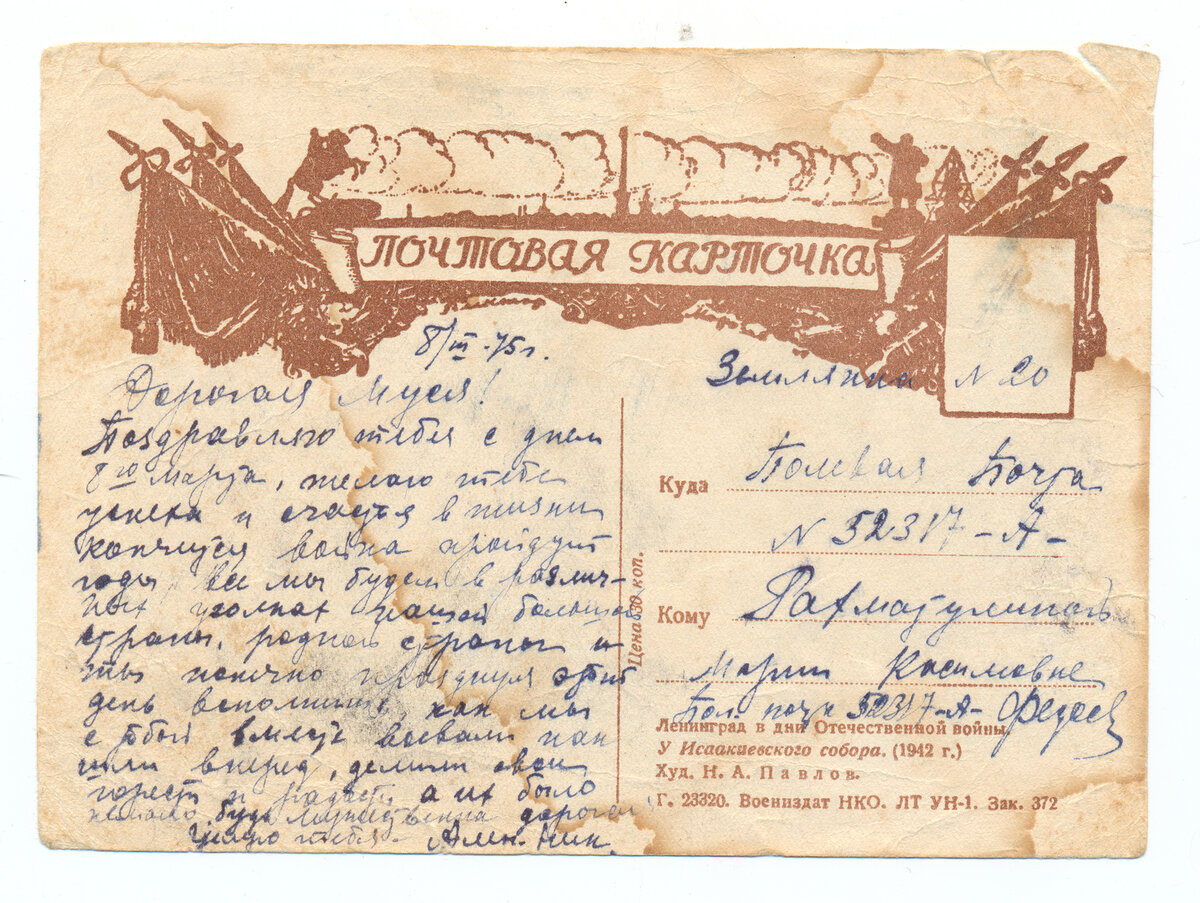 ПОЧТОВАЯ КАРТОЧКА
8/III-45г.
Дорогая Муся!
Поздравляю тебя с днем
8го марта, желаю тебе
успеха и счастья в жизни
кончится война пройдут
годы все мы будем в различ-
ных уголках нашей большой
страны, родной страны и
ты конечно празднуя этот
день вспомнишь, как мы
с тобой вместе воевали как
шли вперед, делили свои
горести и радости, а их было
немало. будь мужественна дорогая
Целую тебя - Алек. Ник.
Цена 30 коп.
Землянка N 20
Куда Полевая Почта
N 52317-А-
Кому Рахматулиной
Марии Касимовне
Пол. почта 52317-А-
Ленинград в дни Отечественной войны.
У Исаакиевского собора. (1942 г.)
Худ. Н. А. Павлов.
Г. 23320. Воениздат НКО. ЛТ УН-1. Зак. 372